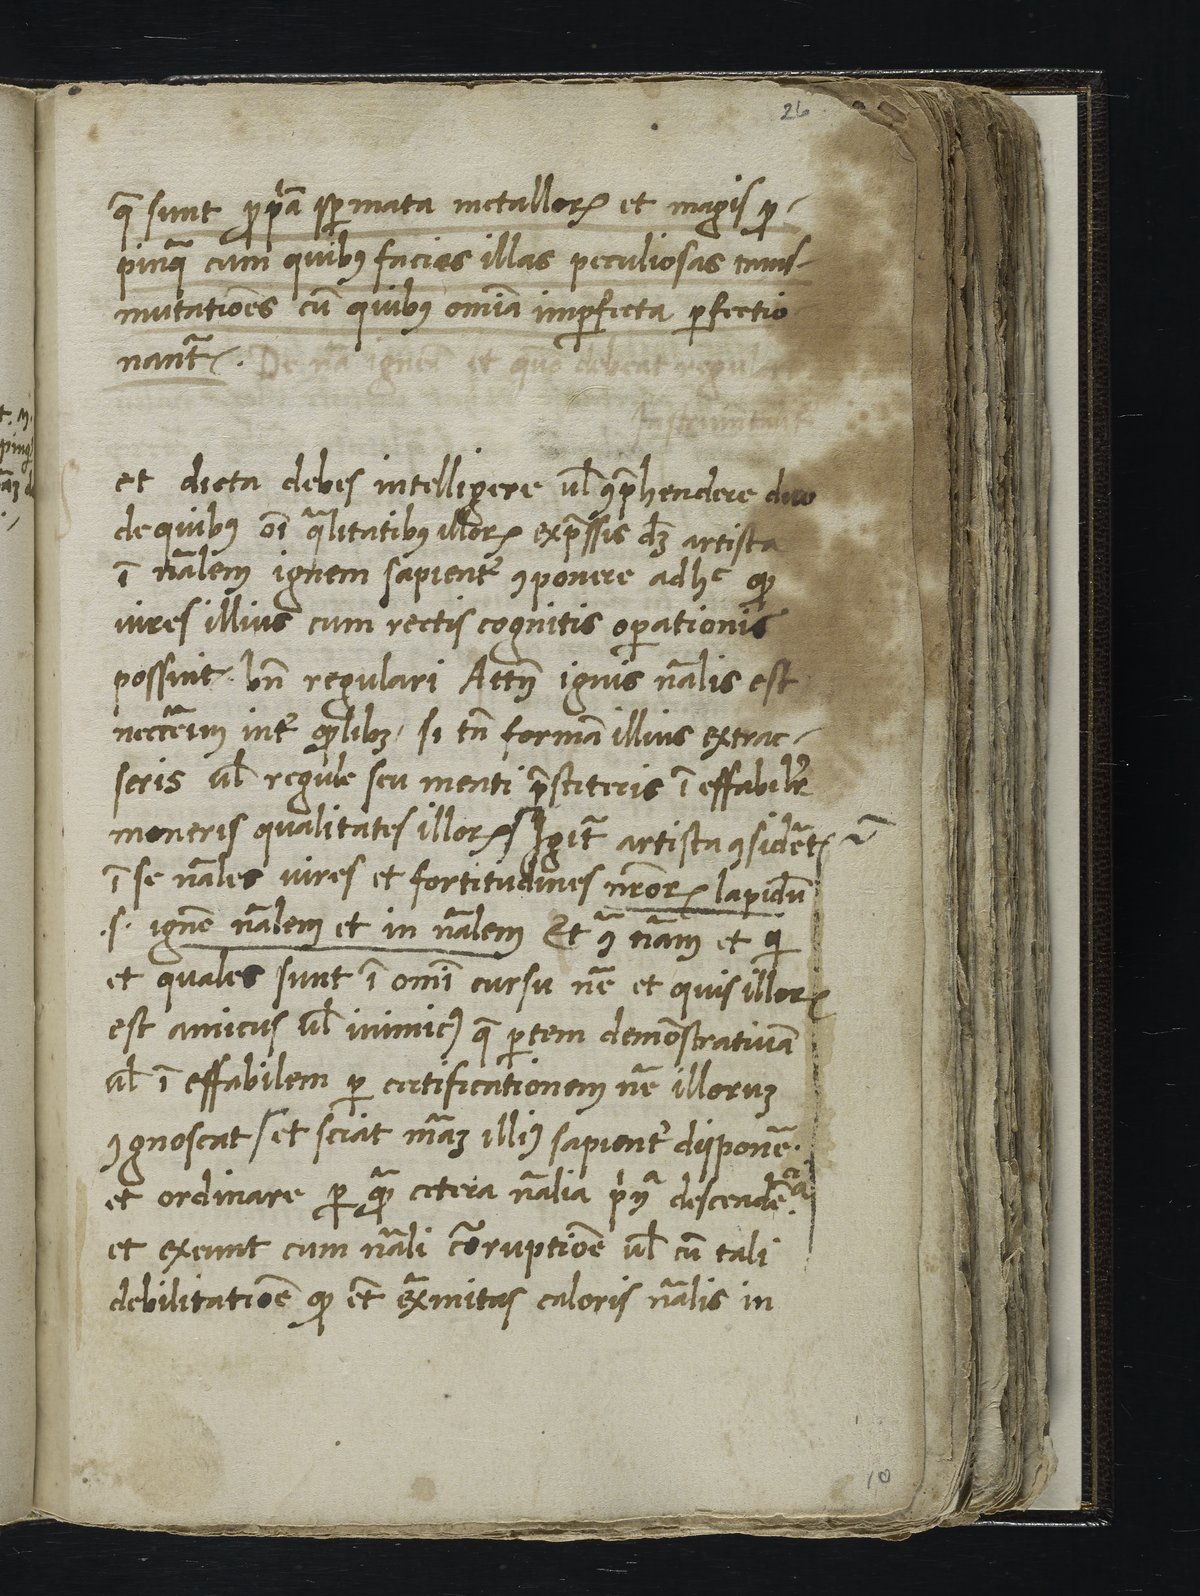 26
q̄ sunt ꝓp̄a sꝑmata metalloꝝ et magis ꝓ-
pinq̄ cum quibꝰ facies illas peculiosas trans-
mutatiōes cū quibꝰ om̄ia imꝑfecta ꝑfectio
nant᷑. De nā igneā et quō debeat regulari
Instrumtalit᷑
et dicta debes intelligere ul̄ ꝯp̄hendere duo
de quibꝰ oī q̄litatibꝰ illoꝝ exp̄ssis dꝫ artista
ī nālem ignem sapient᷑ ꝯponere adhᶜ ꝙ
uires illius cum rectis cognitis oꝑationis
possint bn̄ regulari Attn̄ ignis nālis est
int᷑ si tn̄ formā illius extrac-
seris ul̄ regule seu menti p̄stiteris ī effabilr̄
moneris qualitates illoꝝ Igit᷑ artista ꝯsidēt
ī se nāles uires et fortitudines nr̄oꝝ lapidū
.s. ignē nālem et in nālem Et ꝯ nām et qi
et quales sunt ī om̄i cursu nē et quis illoꝝ
est amicus ul̄ inimicꝰ q̄ ꝑtem demōstratiuā
ul̄ ī effabilem ꝑ certificationem nē illorum
ꝯgnoscat et sciat māꝫ illiꝰ sapient᷑ disponē.
et ordinare ꝑ cetera nālia descendē.
cia
et exeunt cum nāli corruptiōe ul̄ cū tali
debilitatiōe ꝙ ēt ex̄mitas caloris nālis in
10